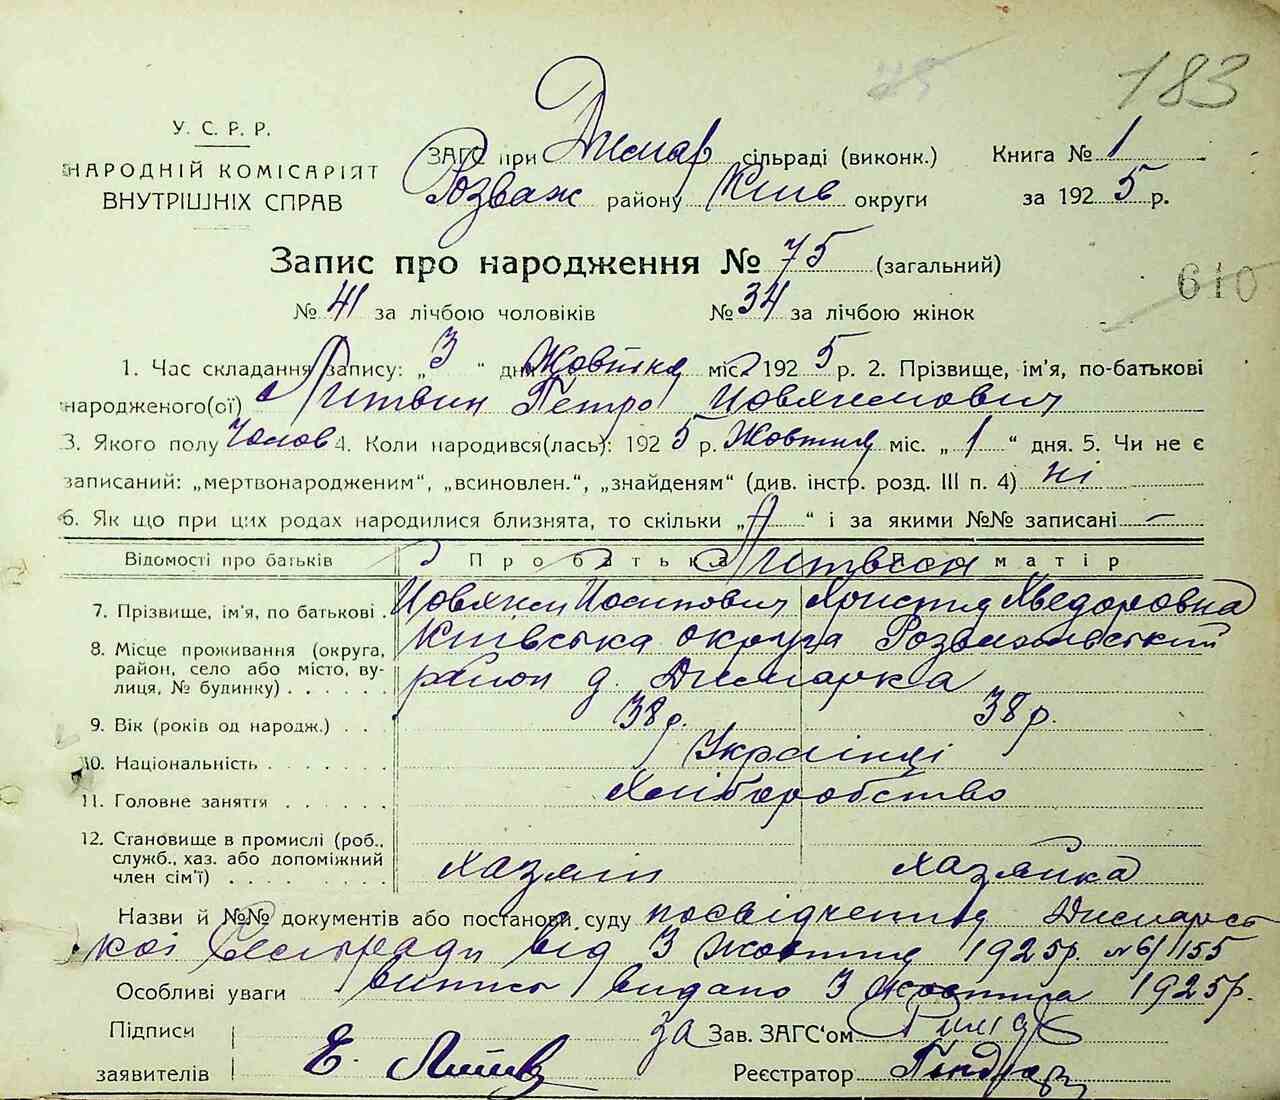 183
У. С. Р. Р.
НАРОДНІЙ КОМІСАРІЯТ
ВНУТРІШНІХ СПРАВ
ЗАГС при Димар сільраді (виконк.) Книга № 1
Розваж району Київ округи за 1925 р.
Запис про народження № 75 (загальний)
610
№ 41 за лічбою чоловіків № 34 за лічбою жінок
1. Час складання запису: „ 3 “ дня Жовтня міс. 1925 р. 2. Прізвище, ім'я, по-батькові
народженого(ої) Литвин Петро Йовхимович
3. Якого полу Чолов 4. Коли народився(лась): 1925 р. Жовтня міс. „ 1 “ дня. 5. Чи не є
записаний: „мертвонародженим“, „всиновлен.“, „знайденям“ (див. інстр. розд. III п. 4) ні
6. Як що при цих родах народилися близнята, то скільки „ “ і за якими №№ записані —
Відомості про батьків Про батька Про матір
Литвин
7. Прізвище, ім'я, по батькові . Йовхим Йосипович Христя Хведоровна
8. Місце проживання (округа, район, село або місто, вулиця, № будинку) . . . . . . Київська округа Розважський
район д. Димарка
9. Вік (років од народж.) . . . 38 р. 38 р.
10. Національність . . . . . . Українці
11. Головне заняття . . . . . . Хліборобство
12. Становище в промислі (роб., служб., хаз. або допоміжний член сім'ї) . . . . . . . . хазяїн хазяйка
Назви й №№ документів або постанови суду посвідчення Димарсь
кої Сельради від 3 жовтня 1925р. № 61/155
Особливі уваги витись видано 3 жовтня 1925р.
Підписи за Зав. ЗАГС'ом
заявителів Е. Литв Реєстратор